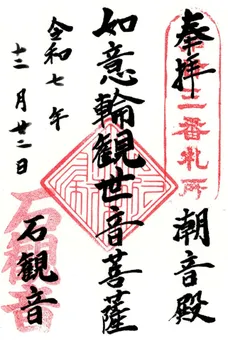 奉拝
三番札所
潮音殿
如意輪觀世音菩薩
令和七年
十二月廿二日
石觀音
石観音